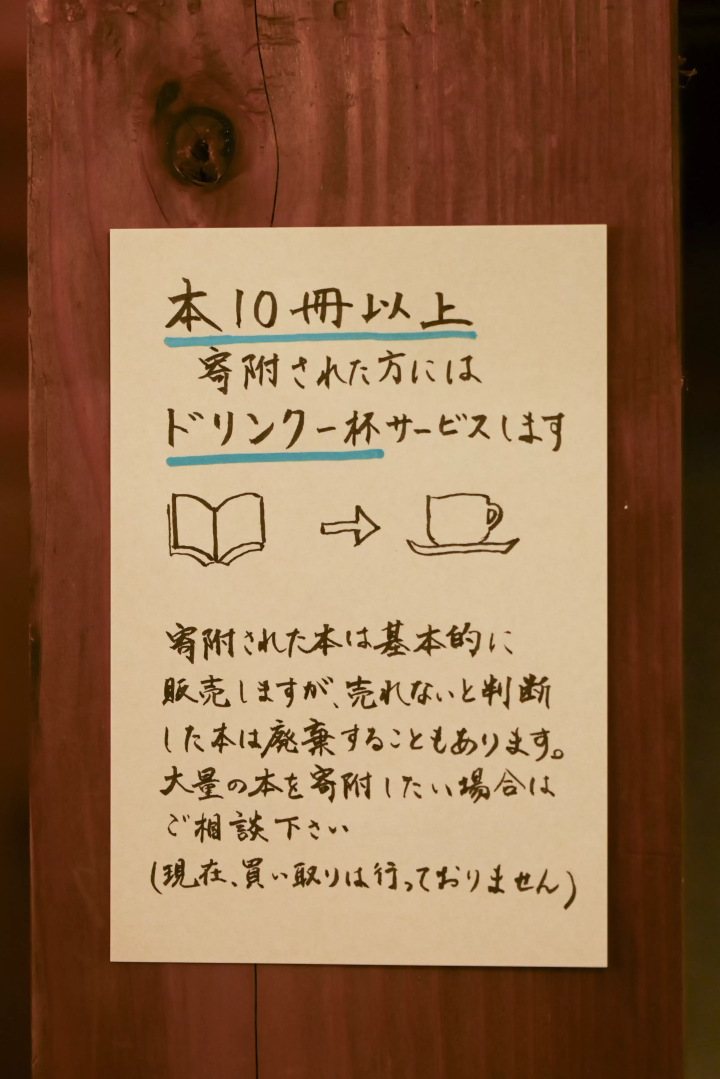 本10冊以上
寄附された方には
ドリンク一杯サービスします
寄附された本は基本的に
販売しますが、売れないと判断
した本は廃棄することもあります。
大量の本を寄附したい場合は
ご相談下さい
(現在、買い取りは行っておりません)